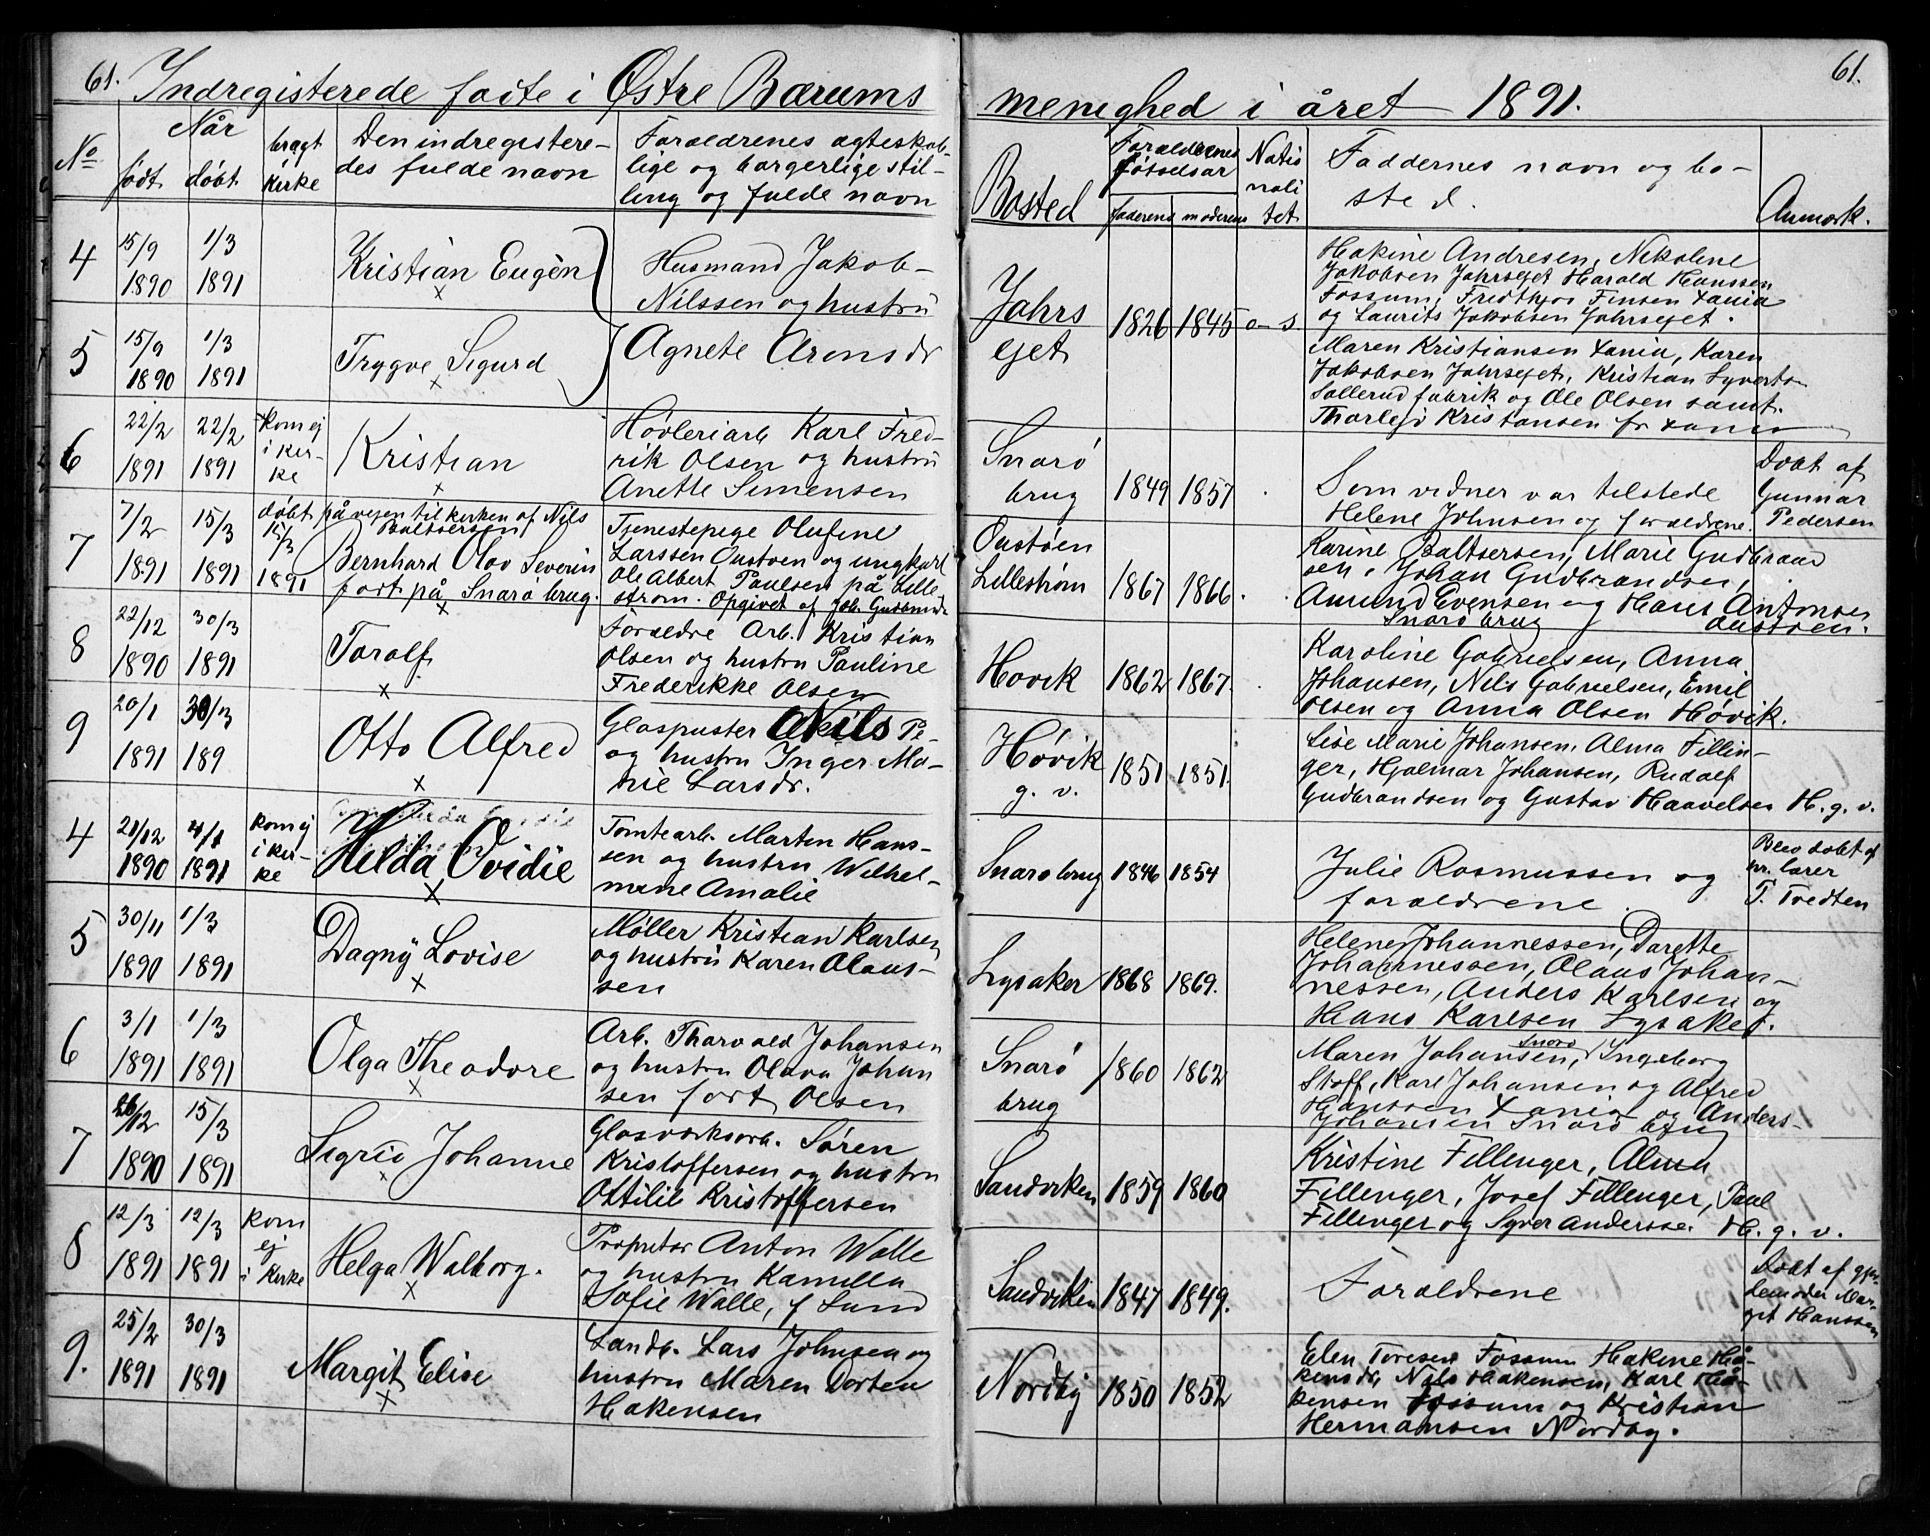 61. Indregisterede fødte i Østre Bærums
menighed i året 1891. 61.
No
Når
født
døbt
bragt
kirke
Den indregistere-
des fulde navn
Forældrenes ægteskab-
lige og borgerlige stil-
ling og fulde navn
Bosted
Forældrenes
fødselsår
faderens moderens
Natio
nali
tet
Faddernes navn og bo-
sted.
Anmærk.
4
15/9
1890
1/3
1891
Kristian Eugèn
x
Husmand Jakob
Nilssen og hustru
Agnete Arensdr
Jahrs
ejet
1826 1845 o- s
Hakine Andresen, Nikoline
Jakobsen Jahrsejet Harald Hanssen
Fossum, Fredthjov Finsen Xania
og Laurits Jakobsen Jahrsejet.
5
15/9
1890
1/3
1891
Trygve Sigurd
x
Maren Kristiansen Xania, Karen
Jakobsen Jahrsejet, Kristian Syverts-
Sollerud fabrik og Ole Olsen samt.
Thorleif Kristansen fr Xania
6
22/2
1891
22/2
1891
kom ej
i kir-
ke
Kristian
x
Høvleriarb Karl Fred-
rik Olsen og hustru
Anette Simensen
Snarø
brug
1849 1857
Som vidner var tilstede
Helene Johnsen og forældrene.
Døbt af
Gunnar
Pedersen
7
7/2
1891
15/3
1891
døbt på vejen til kirken af Nils
Baltsersen
15/3
1891
Bernhard Olav Severin
født på Snarø brug.
x
Tjenestepige Olufine
Larssen Oustøen og ungkarl
Ole Albert Paulsen på Lille-
strøm. Opgivet af Joh. Gudbrands
Oustøen
Lillestrøm
1867 1866.
Karine Baltsersen, Marie Gudbrand
sen, Johan Gudbrandsen,
Amund Evensen og Hans Antonsen
Snarø brug
Oustøen.
8
22/12
1890
30/3
1891
Toralf
x
Forældre Arb. Kristian
Olsen og hustru Pauline
Frederikke Olsen
Høvik
1862 1867.
Karoline Gabrielsen, Anna
Johansen, Nils Gabrielsen, Emil
Olsen og Anna Olsen Høvik.
9
20/1
1891
30/3
189
Otto Alfred
x
Glaspuster Nils Pe-
og hustru Inger Ma-
rie Larsdr.
Høvik
g. v.
1851 1851.
Lise Marie Johansen, Alma Fillin-
ger, Hjalmar Johansen, Rudolf
Gudbrandsen og Gustav Haavelsen H. g. v.
4
21/12
1890
4/1
1891
kom ej
i kir-
ke
Hilda Ovidie
x
Tomtearb. Marten Hans-
sen og hustru Wilhel-
mine Amalie
Snarø brug 1846 1854
Julie Rasmussen og
forældrene.
Blev døbt af
hr. lærer
T. Tvedten
5
30/11
1890
1/3
1891
Dagny Lovise
x
Møller Kristian Karlsen
og hustru Karen Olaus-
sen
Lysaker 1868 1869.
Helene Johannessen, Dorette
Johannessen, Olaus Johan-
nessen, Anders Karlsen og
Hans Karlsen Lysaker.
6
3/1
1891
1/3
1891
Olga Theodore
x
Arb. Thorvald Johansen
og hustru Olava Johan
sen født Olsen
Snarø
brug
1860 1862
Snarø
Maren Johansen, Ingeborg
Stoff, Karl Johansen og Alfred
Hanssen Xania og Anders-
Johansen Snarø brug
7
26/12
1890
15/3
1891
Sigrid Johanne
x
Glasværksarb. Søren
Kristoffersen og hustru
Ottilie Kristoffersen
Sandviken 1859 1860
Kristine Fillenger, Alma
Fillenger, Josef Fillenger, Paul
Fillenger og Syver Anderssen H. g. v.
8
12/3
1891
12/3
1891
kom
ej
i kirke
Helga Walborg.
x
Proprietær Anton Walle
og hustru Kamilla
Sofie Walle, f Lund
Sandviken 1847 1849.
Forældrene
Døbt af gjor-
demoder Mar-
git Hanssen
9.
25/2
1891
30/3
1891
Margit Elise
x
Landb. Lars Johnsen og
hustru Maren Dorten
Hakensen
Nordby 1850 1852
Elen Toresen Fossum Hakine Hå-
kensdr, Nils Hakensen, Karl Ha-
kensen Fossum og Kristian
Hermansen Nordby.